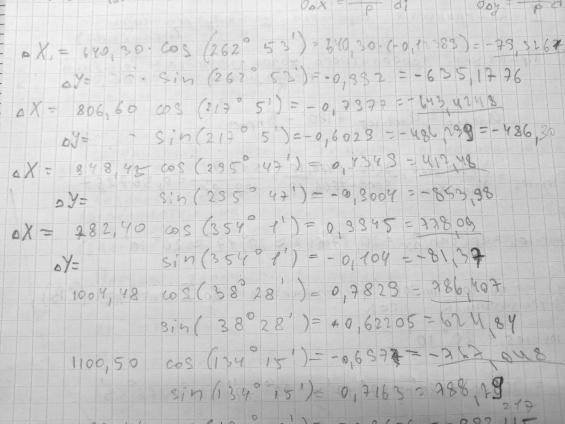 ΔX = P di ΔY = P d
ΔX. = 640,30 · cos (262° 53') = 640,30 · (-0, 1 89) = -79,3267
ΔY= sin (262° 53') = -0,992 = -635,1776
ΔX = 806,60 cos (217° 5') = -0,7977 = -643,4248
ΔY= sin (217° 5') = -0,6029 = -486,299 = -486,30
ΔX = 948,45 cos (295° 47') = 0,4349 = 412,48
ΔY= sin (295° 47') = -0,9004 = -853,98
ΔX = 782,40 cos (354° 1') = 0,9945 = 778,09
ΔY= sin (354° 1') = -0,104 = -81,37
1004,48 cos (38° 28') = 0,7829 = 786,407
sin( 38° 28') = 0,62205 = 624,84
1100,50 cos (134° 15') = -0,697 = -767,048
sin (134° 15') = 0,7163 = 788,29